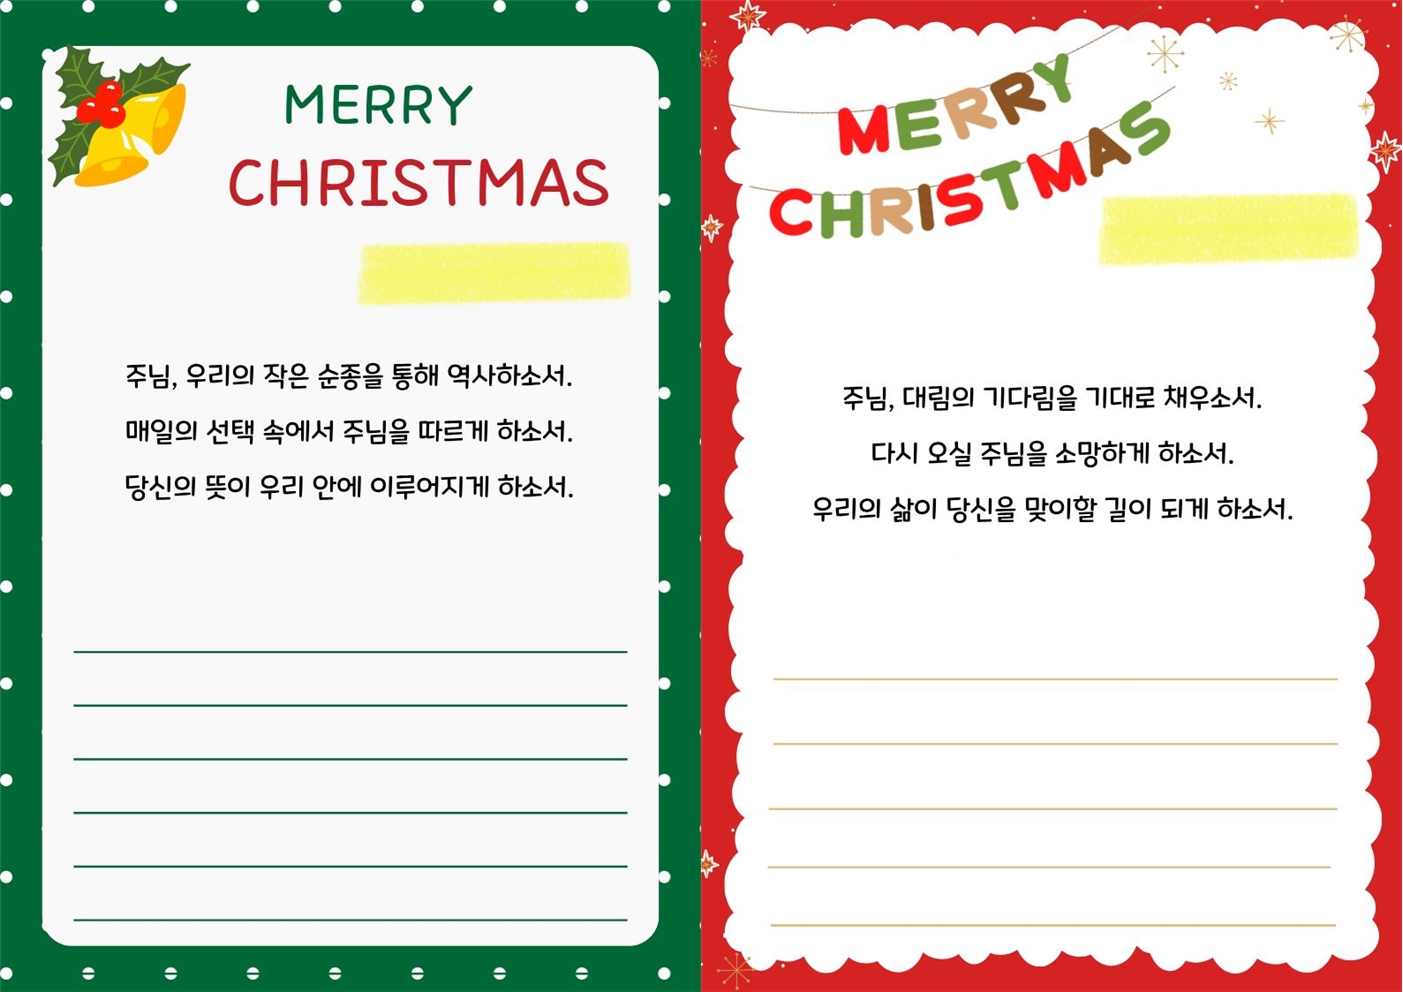 MERRY
CHRISTMAS
주님, 우리의 작은 순종을 통해 역사하소서.
매일의 선택 속에서 주님을 따르게 하소서.
당신의 뜻이 우리 안에 이루어지게 하소서.
MERRY
CHRISTMAS
주님, 대림의 기다림을 기대로 채우소서.
다시 오실 주님을 소망하게 하소서.
우리의 삶이 당신을 맞이할 길이 되게 하소서.